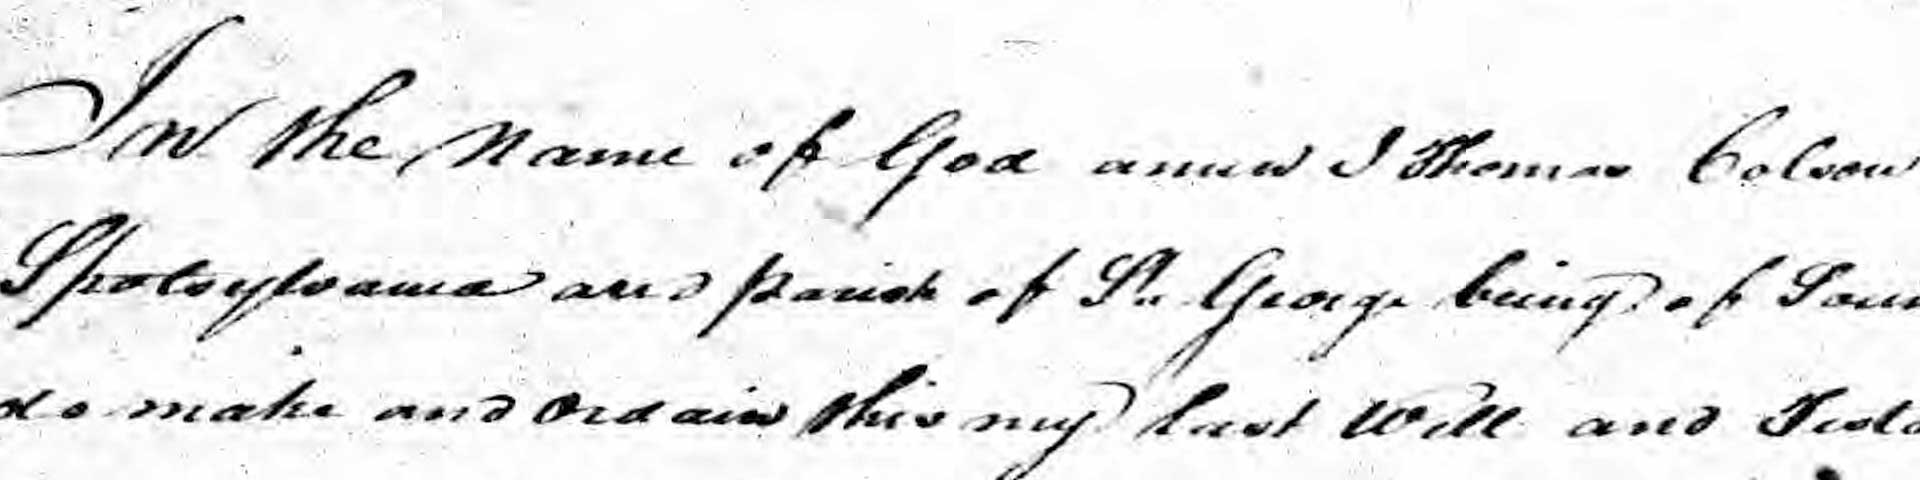 In the Name of God amen I Thomas Colson
Spotsylvania and parish of St. George being of Soun
do make and Ordain this my last Will and Testa